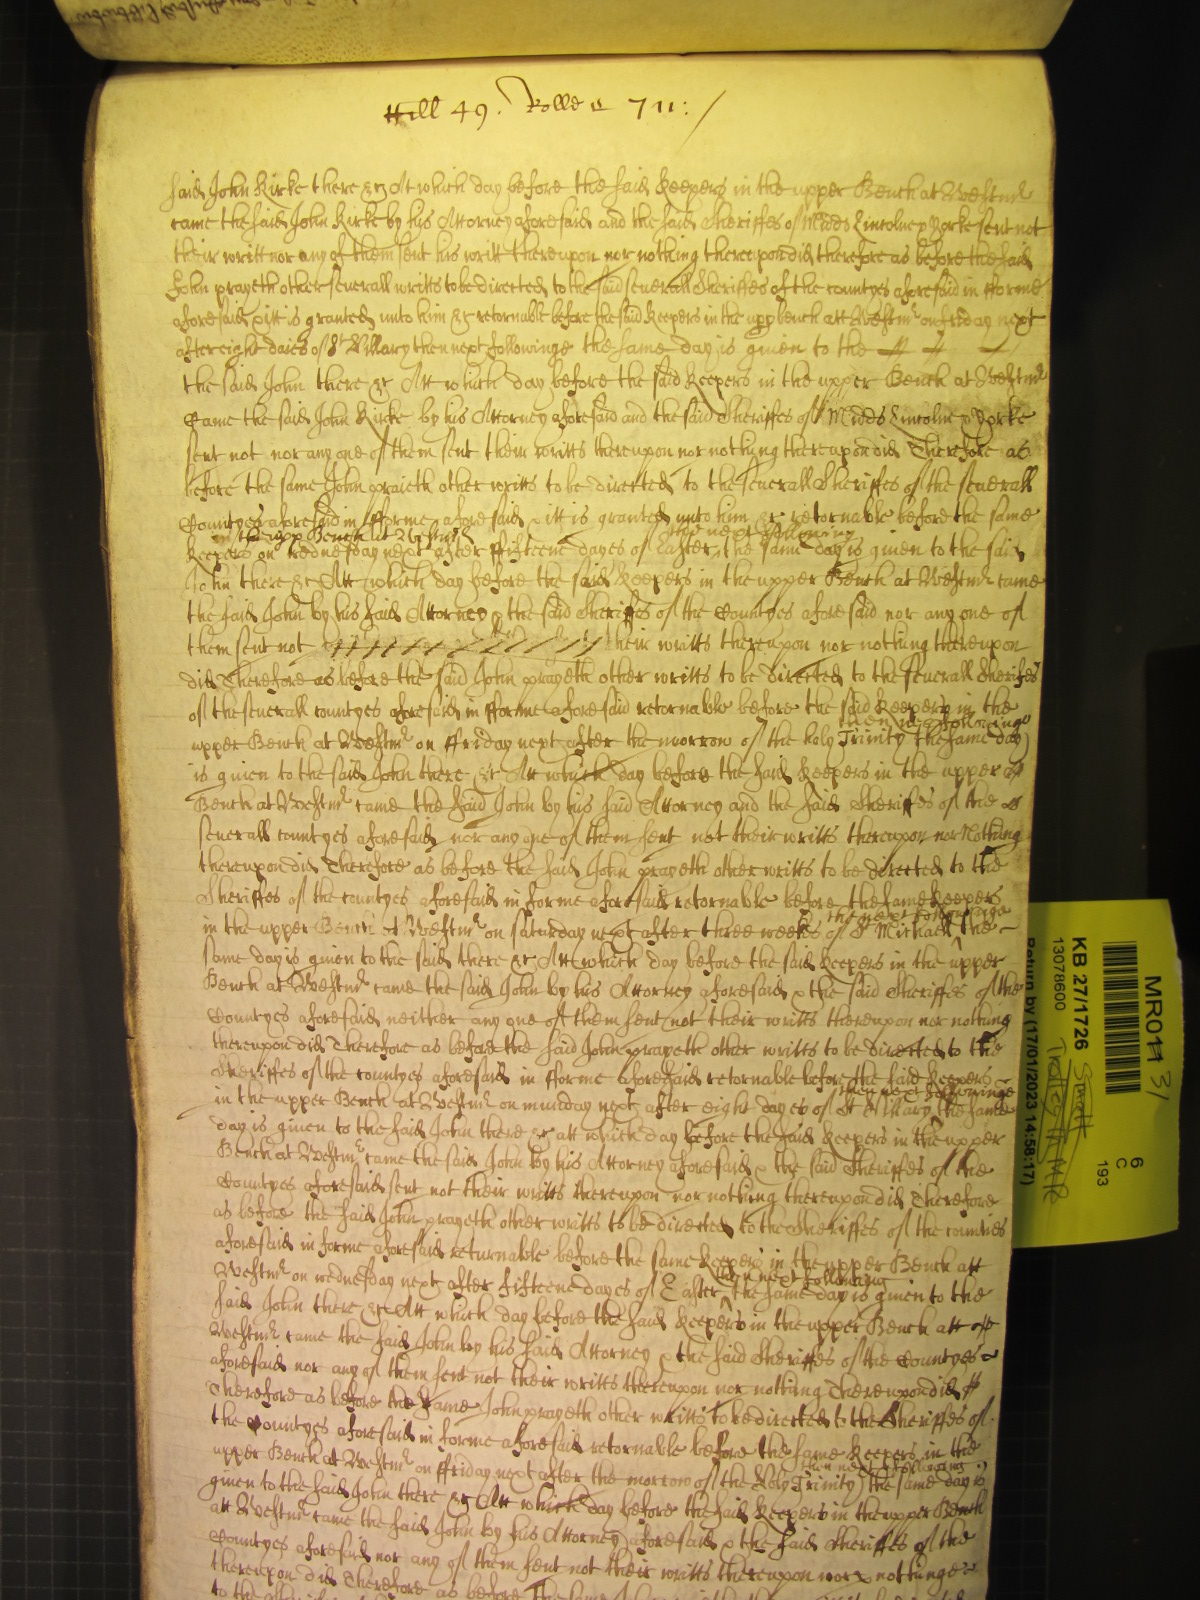 Hill 49. Rolle 711:
said John Kirke there &c Att which day before the said Keepers in the upper Bench at Westmr
came the said John Kirke by his Attorney aforesaid and the said Sheriffes of Midds Lincolne & Yorke sent not
their writts nor any of them sent his writt thereupon nor nothing thereupon did therefore as before the said
John prayeth other severall writts to be directed to the said severall Sheriffes of the countyes aforesaid in fforme
aforesaid & itt is granted unto him &c retornable before the said Keepers in the upp bench att Westmr on friday next
after eight daies of St Hillary then next followinge the same day is given to the
the said John there &c Att which day before the said Keepers in the upper Bench at Westmr
Came the said John Kirke by his Attorney aforesaid and the said Sheriffes of Midds Lincolne & Yorke
sent not nor any one of them sent their writts thereupon nor nothing thereupon did Therefore as
before the same John praieth other writts to be directed to the severall Sheriffes of the severall
Countyes aforesaid in fforme aforesaid & itt is granted unto him &c retornable before the same
in the upp Bench at Westmr then next following
Keepers on wednesday next after ffifteene dayes of Easter, the same day is given to the said
John there &c Att which day before the said Keepers in the upper Bench at Westmr came
the said John by his said Attorney & the said Sheriffes of the Countyes aforesaid nor any one of
them sent not their writts thereupon nor nothing thereupon
did Therefore as before the said John prayeth other writts to be directed to the severall Sherifes
of the severall countyes aforesaid in fforme aforesaid retornable before the said Keepers in the
then next followinge
upper Bench at Westmr on ffriday next after the morrow of the holy Trinity the same day
is given to the said John there &c Att which day before the said Keepers in the upper
Bench at Westmr came the said John by his said Attorney and the said Sheriffes of the
severall countyes aforesaid nor any one of them sent not their writts thereupon nor Nothing
thereupon did Therefore as before the said John prayeth other writts to be directed to the
Sheriffes of the countyes aforesaid in forme aforesaid retornable before the same Keepers
then next followinge
in the upper Bench at Westmr on saturday next after three weekes of St Michaell the
same day is given to the said there &c Att which day before the said Keepers in the upper
Bench at Westmr came the said John by his Attorney aforesaid & the said Sheriffes of the
Countyes aforesaid neither any one of them sent not their writts thereupon nor nothing
thereupon did Therefore as before the said John prayeth other writts to be directed to the
Sheriffes of the countyes aforesaid in fforme aforesaid retornable before the said Keepers
then next followinge
in the upper Bench at Westmr on munday next after eight dayes of St Hillary the same
day is given to the said John there &c att which day before the said Keepers in the upper
Bench at Westmr came the said John by his Attorney aforesaid & the said Sheriffes of the
Countyes aforesaid sent not their writts thereupon nor nothing thereupon did Therefore
as before the said John prayeth other writts to be directed to the Sheriffes of the counties
aforesaid in forme aforesaid returnable before the same Keepers in the upper Bench att
then next following
Westmr on wednesday next after fifteene dayes of Easter, the same day is given to the
said John there &c Att which day before the said Keepers in the upper Bench att
Westmr came the said John by his said Attorney & the said Sheriffes of the Countyes
aforesaid nor any of them sent not their writts thereupon nor nothing Thereupon did
Therefore as before the same John prayeth other writts to be directed to the Sheriffes of
the Countyes aforesaid in forme aforesaid retornable before the same Keepers in the
then next following
upper Bench at Westmr on ffriday next after the morrow of the Holy Trinity the same day is
given to the said John there &c Att which day before the said Keepers in the upper Bench
att Westmr came the said John by his Attorney aforesaid & the said Sheriffes of the
Countyes aforesaid nor any of them sent not their writts thereupon nor nothinge
thereupon did Therefore as before the same John
MR011 3/
6
C
193
KB 27/1726
13078600
Return by (17/01/2023 14:58:17)